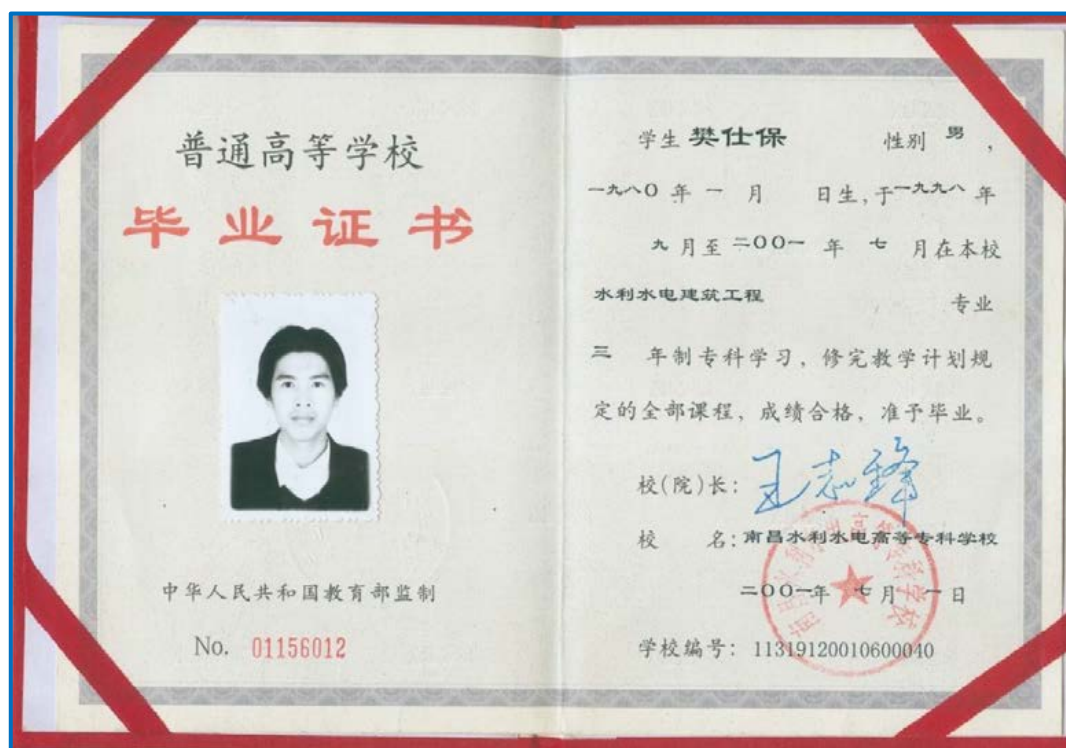 普通高等学校
毕业证书
中华人民共和国教育部监制
No. 01156012
学生 樊仕保 性别 男，
一九八〇 年 一 月 日生，于一九九八 年
九 月至 二〇〇一 年 七 月在本校
水利水电建筑工程 专业
三 年制专科学习，修完教学计划规
定的全部课程、成绩合格，准予毕业。
校(院)长： 王志锋
校 名：南昌水利水电高等专科学校
二〇〇一年 七 月 一 日
学校编号：11319120010600040
南昌水利水电高等专科学校